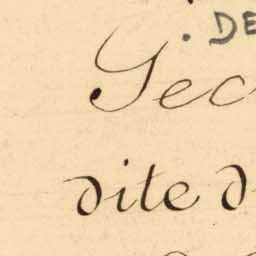 . DE
Sec
dite d